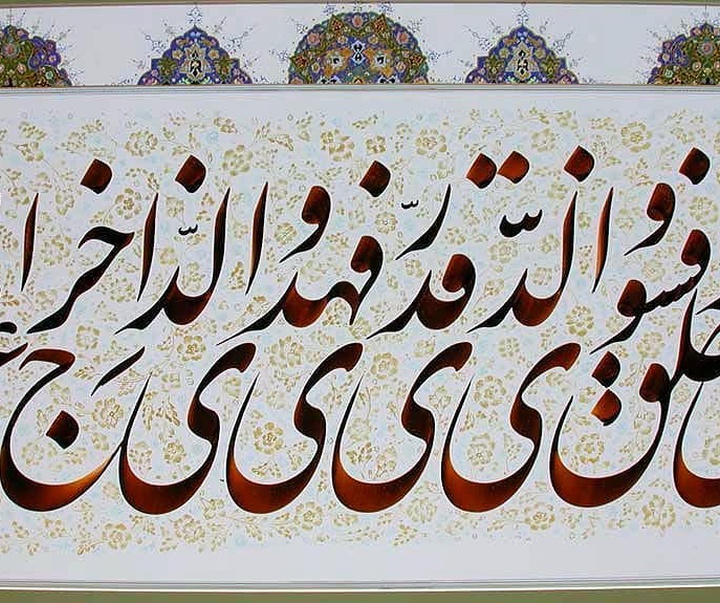 خلق فسوی والذی قدّر فهدی والذی اخرج